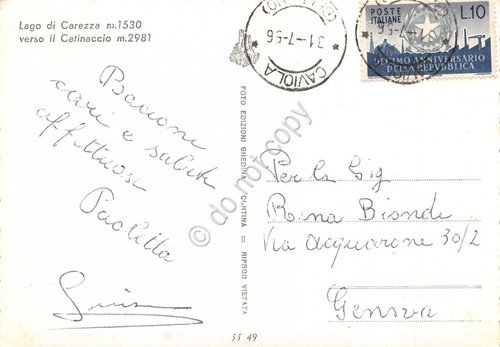 Lago di Carezza m.1530
verso il Catinaccio m.2981
CAVIOLA
31-7-56
POSTE ITALIANE
L.10
DECIMO ANNIVERSARIO
DELLA REPUBBLICA
Bacioni
cari e saluti
affettuosi
Paoletta
FOTO EDIZIONI GHEDINA - CORTINA - RIPROD. VIETATA
do not copy
Per la Sig.
Rina Biondi
Via Acquarone 30/2
Genova
SS 49